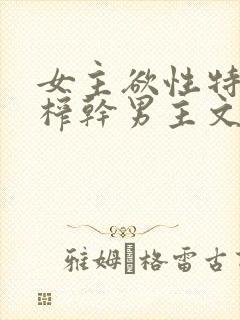 女主欲性特
榨幹男主文
雅姆�格雷古